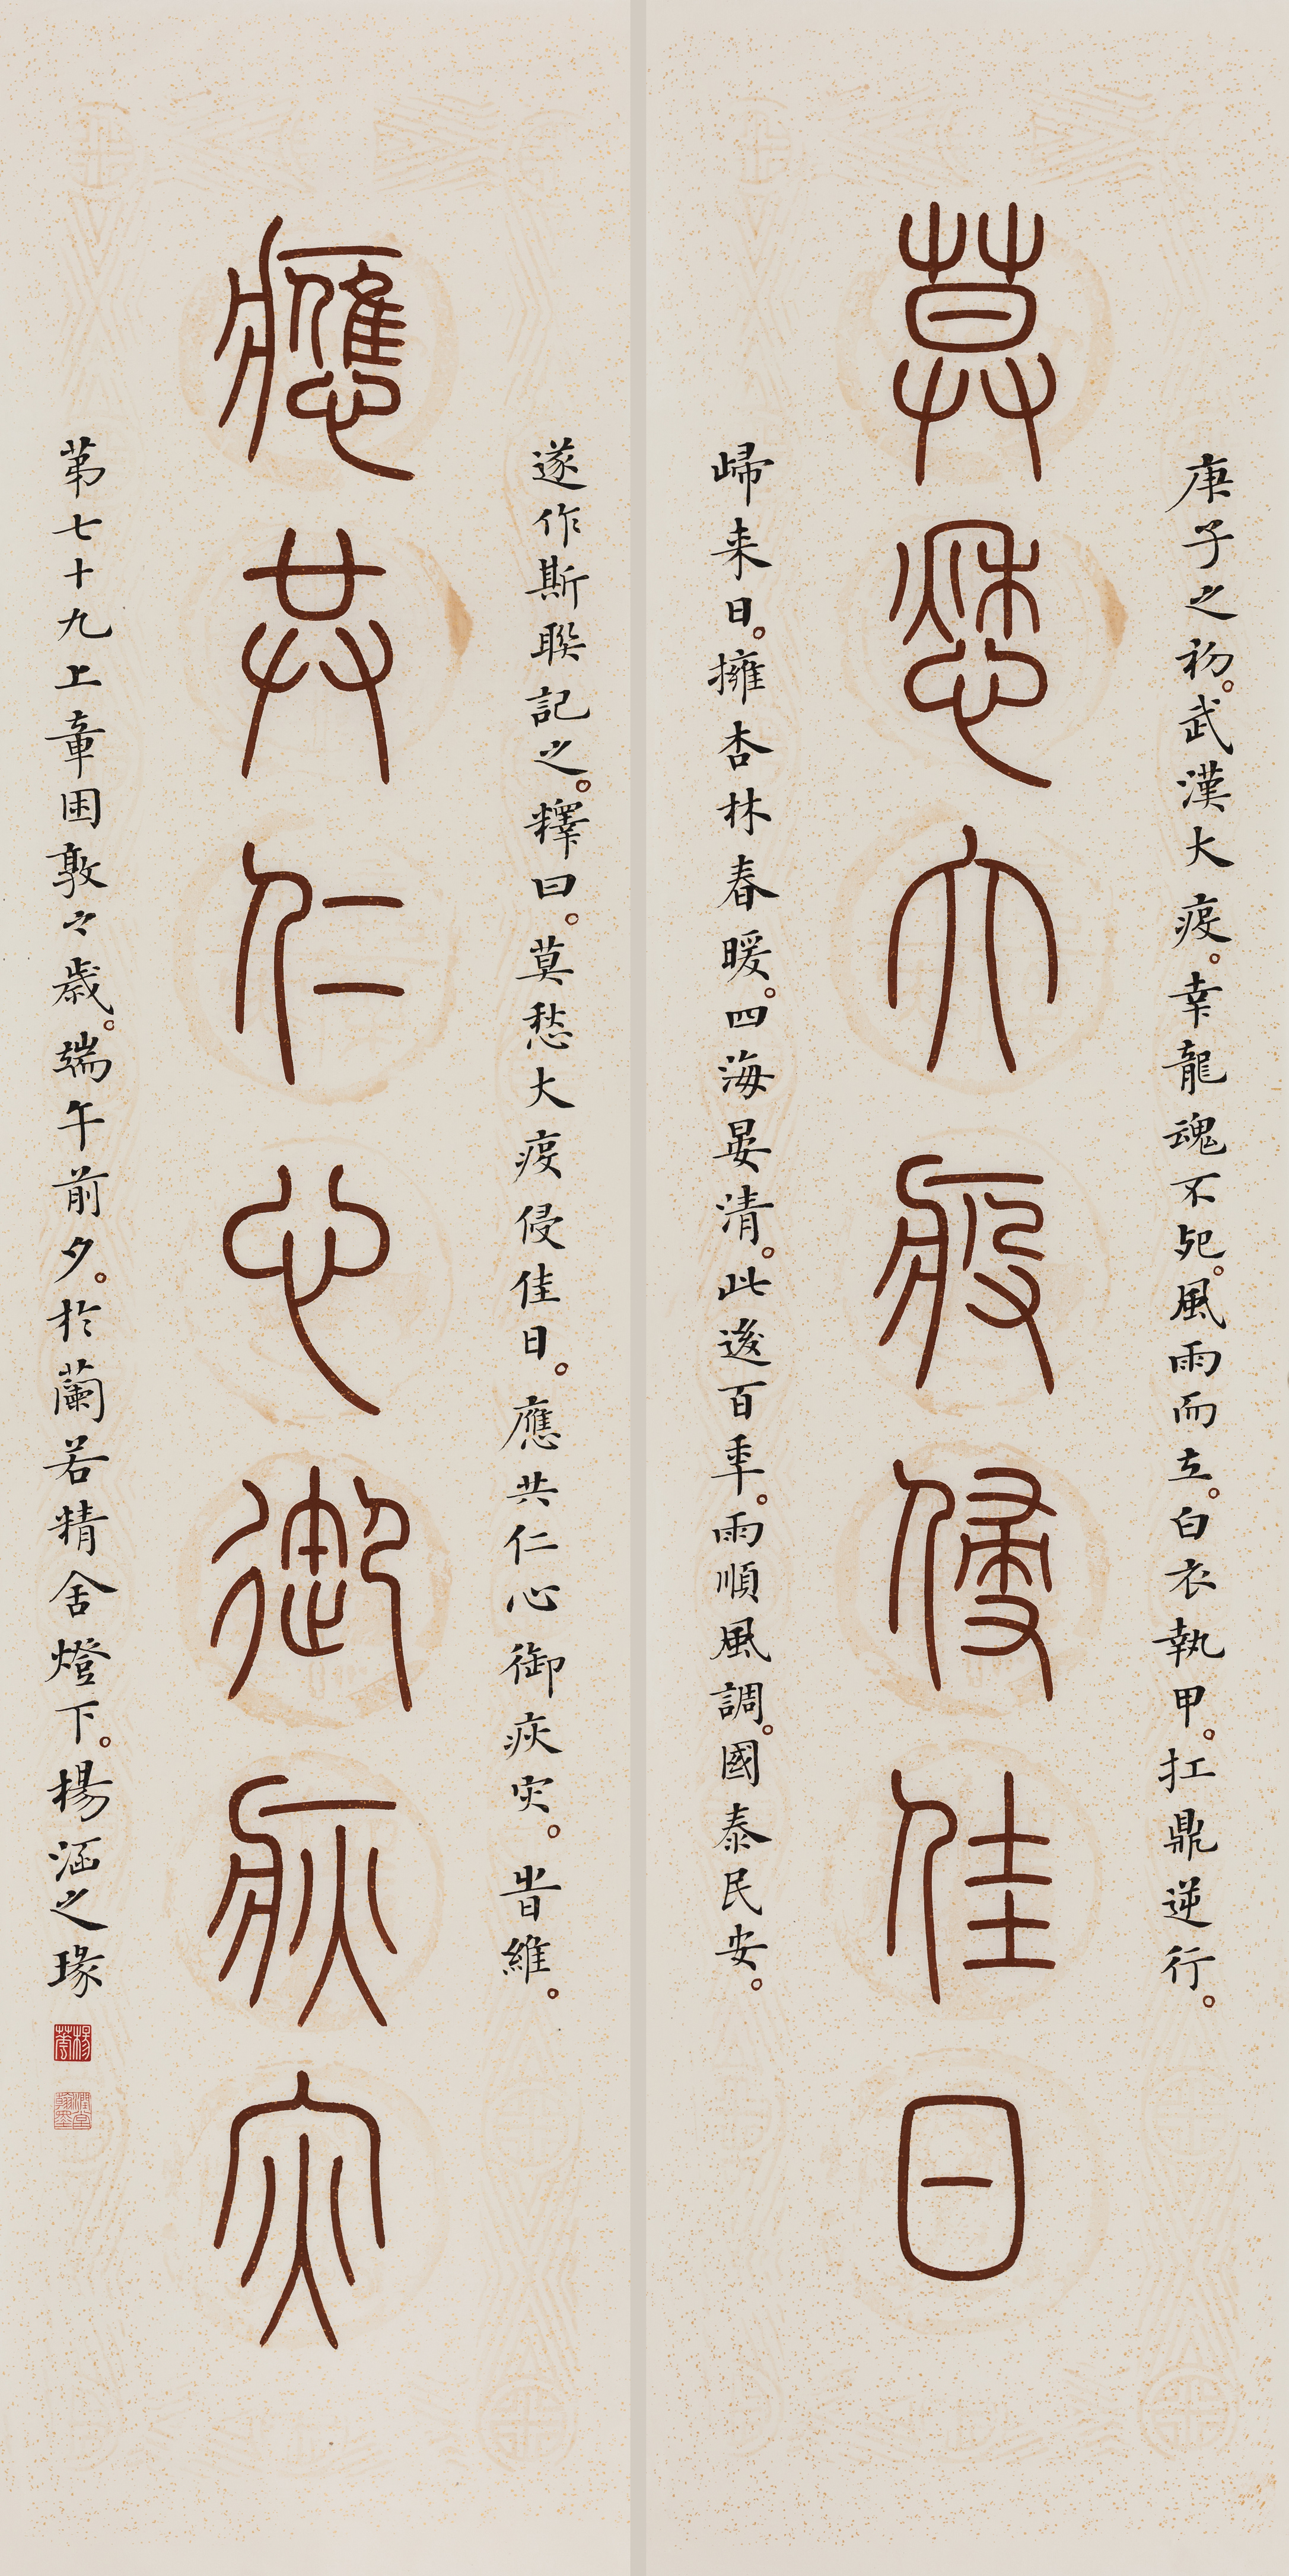 莫愁大疫侵佳日
庚子之初。武漢大疫。幸龍魂不死。風雨而立。白衣執甲。扛鼎逆行。
歸来日。擁杏林春暖。四海晏清。此後百年。雨順風調。國泰民安。
應共仁心御疢灾
遂作斯聯記之。釋曰。莫愁大疫侵佳日。應共仁心御疢灾。旹維。
第七十九上章困敦々歲。端午前夕。於蘭若精舍燈下。楊涵之瑑